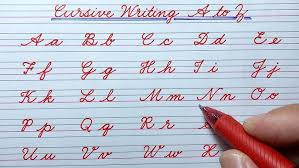 Cursive Writing A to Z
A a B b C c D d E e
F f G g H h I i J j
K k L l M m N n O o
P p Q q R r
U u V v W w X